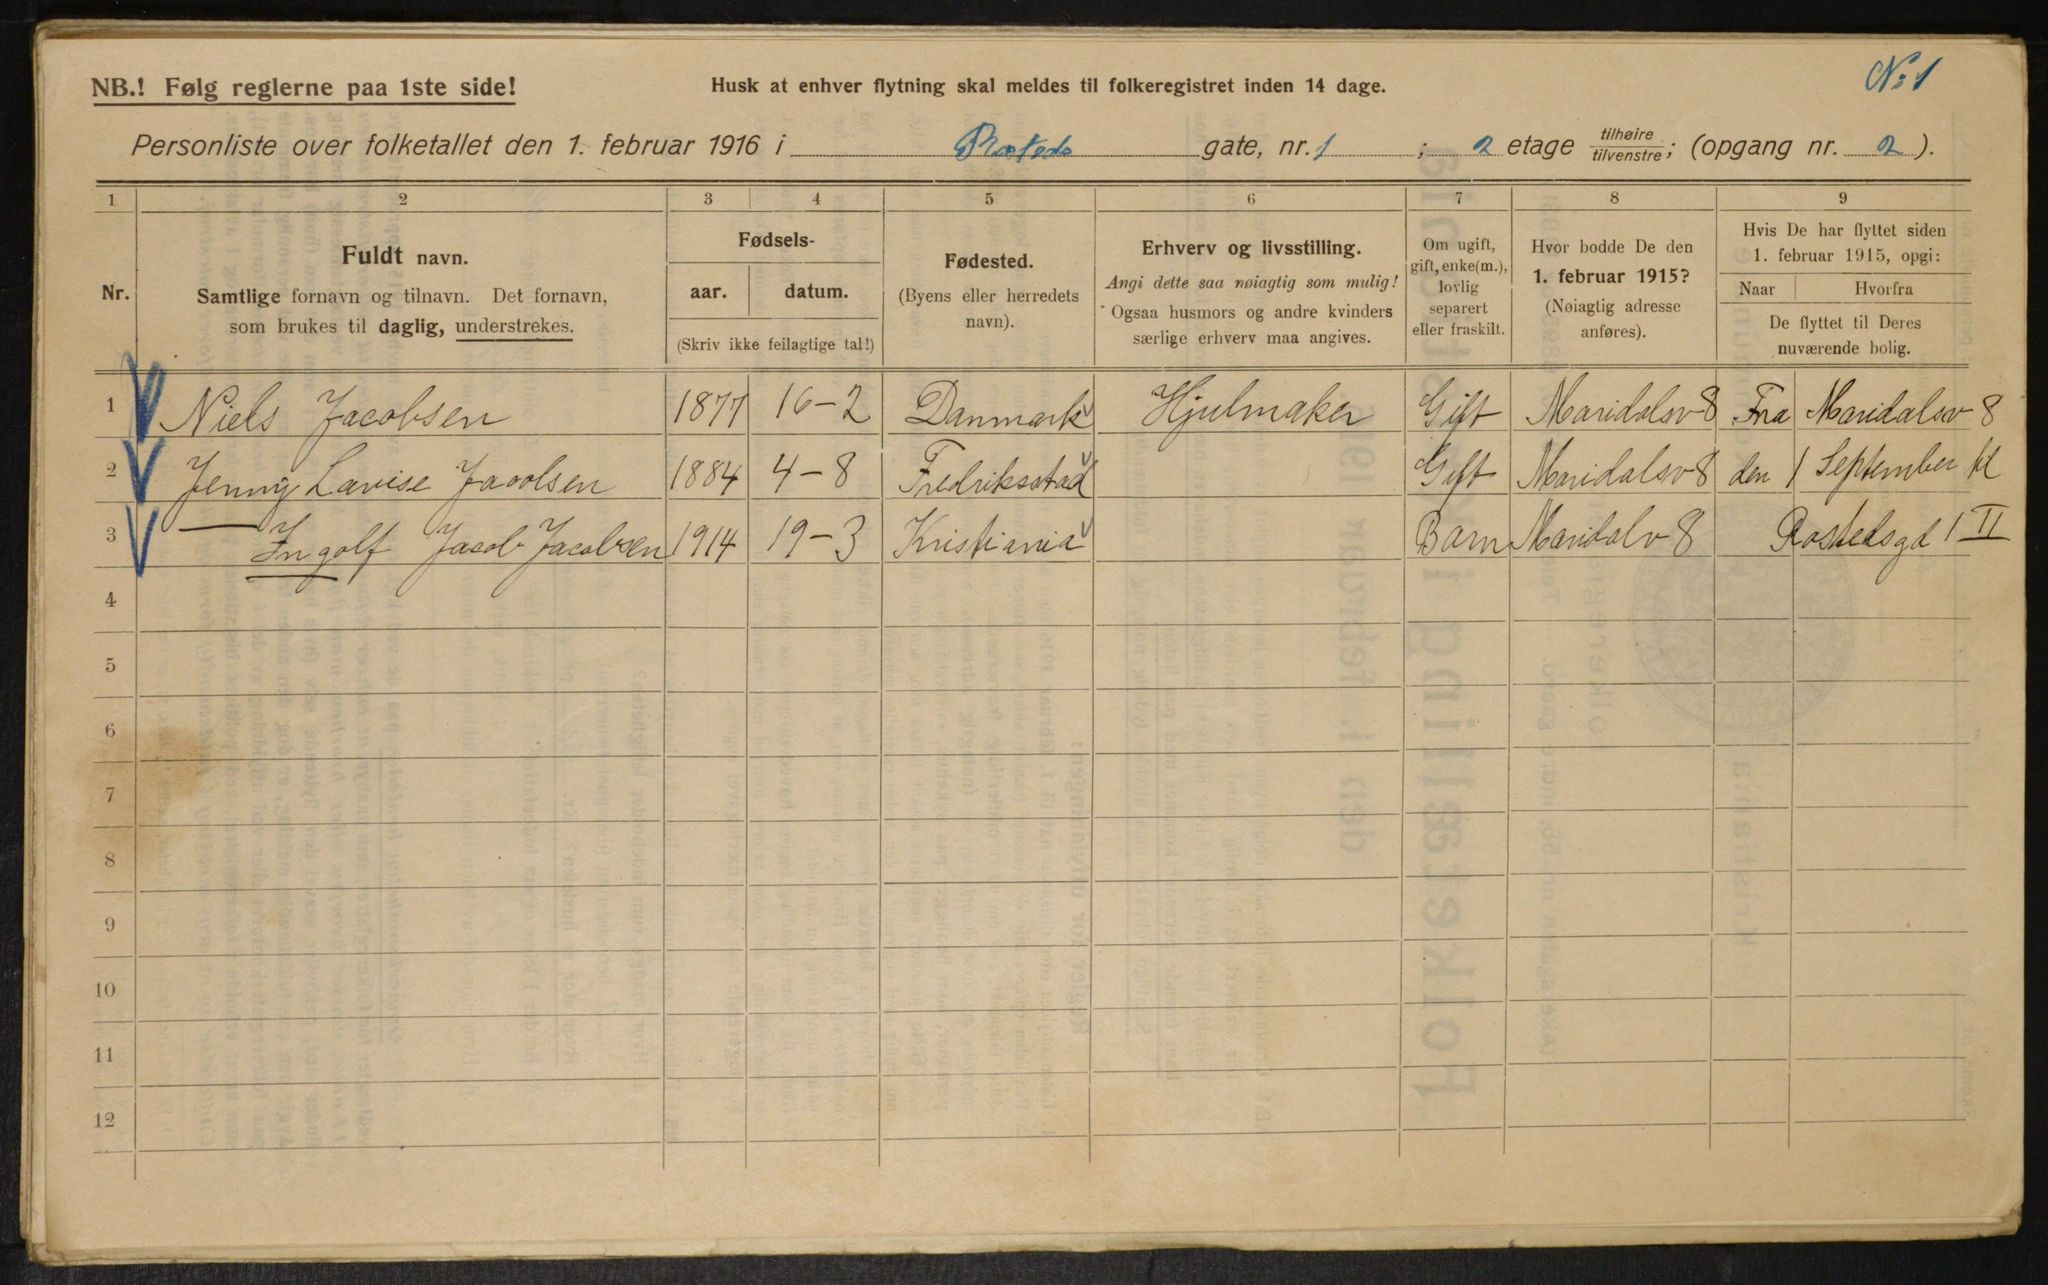 NB.! Følg reglerne paa 1ste side! Husk at enhver flytning skal meldes til folkeregistret inden 14 dage. No 1
Personliste over folketallet den 1. februar 1916 i Rosteds gate, nr. 1 ; 2 etage tilhøire/tilvenstre; (opgang nr. 2 ).
1 2 3 4 5 6 7 8 9
Nr.
Fuldt navn.
Samtlige fornavn og tilnavn. Det fornavn,
som brukes til daglig, understrekes.
Fødsels-
aar. datum.
(Skriv ikke feilagtige tal!)
Fødested.
(Byens eller herredets
navn).
Erhverv og livsstilling.
Angi dette saa nøiagtig som mulig!
Ogsaa husmors og andre kvinders
særlige erhverv maa angives.
Om ugift,
gift, enke(m.),
lovlig
separert
eller fraskilt.
Hvor bodde De den
1. februar 1915?
(Nøiagtig adresse
anføres).
Hvis De har flyttet siden
1. februar 1915, opgi:
Naar Hvorfra
De flyttet til Deres
nuværende bolig.
1 Niels Jacobsen 1877 16-2 Danmark Hjulmaker Gift Maridalsv 8 Fra Maridalsv 8
2 Jenny Lavise Jacolsen 1884 4-8 Fredriksstad Gift Maridalsv 8 den 1 September til
3 — Ingolf Jacob Jacobsen 1914 19-3 Kristiania Barn Maridalv 8 Rostedsgd 1 II
4
5
6
7
8
9
10
11
12